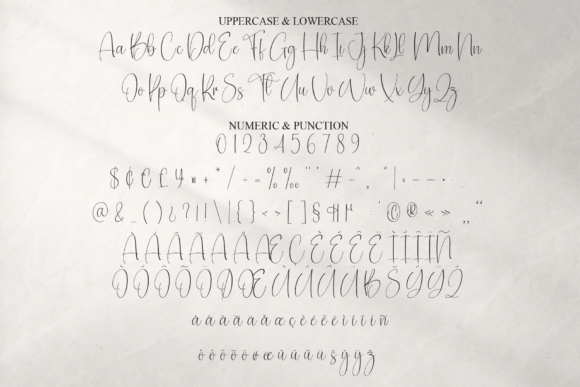 UPPERCASE & LOWERCASE
Aa Bb Cc Dd Ee Ff Gg Hh Ii Jj Kk Ll Mm Nn
Oo Pp Qq Rr Ss Tt Uu Vv Ww Xx Yy Zz
NUMERIC & PUNCTION
0 1 2 3 4 5 6 7 8 9
$ ¢ € £ ¥ × + * / ÷ = % ‰ " ' # - ^ , ~ | : – — - .
@ & _ ( ) ¿ ? ¡ ! \ | { } < > [ ] § ¶ µ ' © ® « » „ “
À Á Â Ã Ä Å Æ Ç È É Ê Ë Ì Í Î Ï Ñ
Ò Ó Ô Õ Ö Ø Œ Ù Ú Û Ü ß Š Ý Ÿ Ž
à á â ã ä å æ ç è é ê ë ì í î ï ñ
ò ó ô õ ö ø œ ù ú û ü š ý ÿ ž